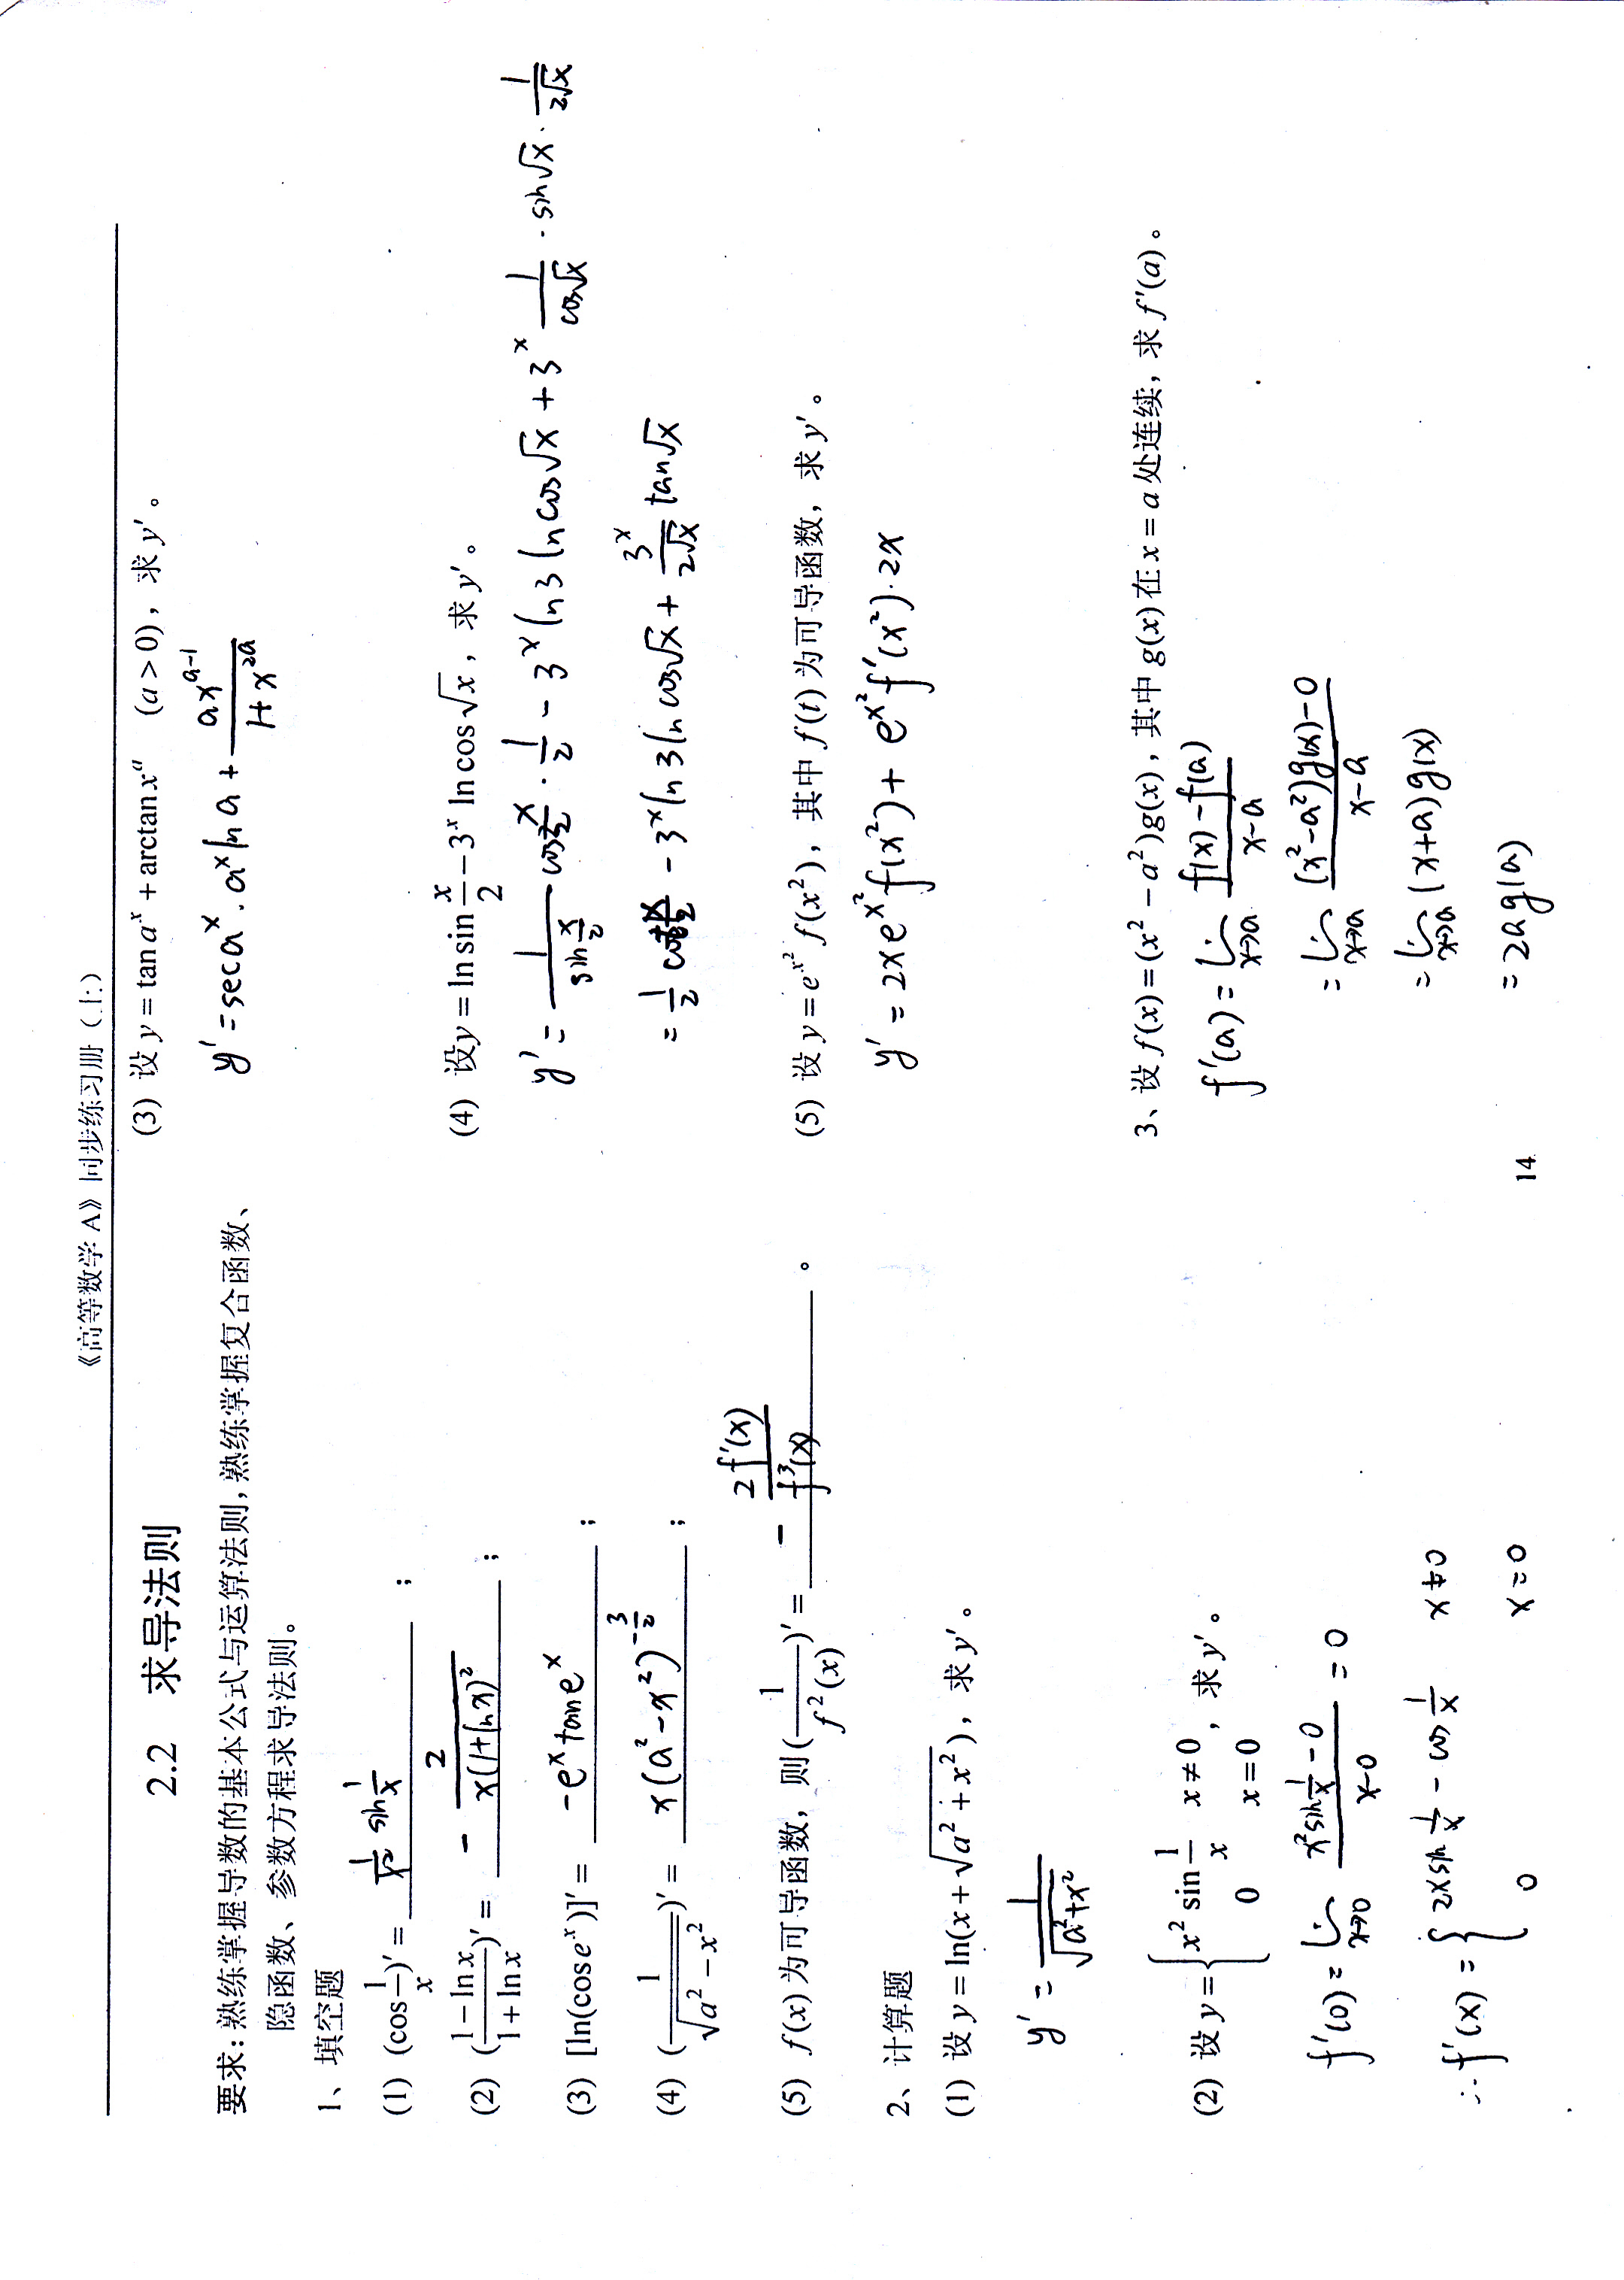 《高等数学 A》同步练习册（上）
2.2 求导法则
要求：熟练掌握导数的基本公式与运算法则，熟练掌握复合函数、
隐函数、参数方程求导法则。
1、填空题
(1) (cos 1/x)' = 1/x² sin 1/x ；
(2) ((1 − ln x)/(1 + ln x))' = − 2/(x(1+ln x)²) ；
(3) [ln(cos eˣ)]' = −eˣ tan eˣ ；
(4) (1/√(a² − x²))' = x(a² − x²)^(−3/2) ；
(5) f(x) 为可导函数，则 (1/f²(x))' = − 2f'(x)/f³(x) 。
2、计算题
(1) 设 y = ln(x + √(a² + x²))，求 y'。
y' = 1/√(a²+x²)
(2) 设 y = { x² sin 1/x x ≠ 0
0 x = 0 ，求 y'。
f'(0) = lim x→0 (x² sin 1/x − 0)/(x−0) = 0
∴ f'(x) = { 2x sin 1/x − cos 1/x x ≠ 0
0 x = 0
(3) 设 y = tan aˣ + arctan xᵃ (a > 0)，求 y'。
y' = sec aˣ · aˣ ln a + ax^(a−1)/(1+x^(2a))
(4) 设 y = ln sin x/2 − 3ˣ ln cos √x，求 y'。
y' = 1/(sin x/2) cos x/2 · 1/2 − 3ˣ ln 3 ln cos √x + 3ˣ 1/(cos √x) · sin √x · 1/(2√x)
= 1/2 cot x/2 − 3ˣ ln 3 ln cos √x + 3ˣ/(2√x) tan √x
(5) 设 y = e^(x²) f(x²)，其中 f(t) 为可导函数，求 y'。
y' = 2x e^(x²) f(x²) + e^(x²) f'(x²) · 2x
3、设 f(x) = (x² − a²)g(x)，其中 g(x) 在 x = a 处连续，求 f'(a)。
f'(a) = lim x→a (f(x) − f(a))/(x−a)
= lim x→a ((x² − a²)g(x) − 0)/(x−a)
= lim x→a (x+a)g(x)
= 2a g(a)
14